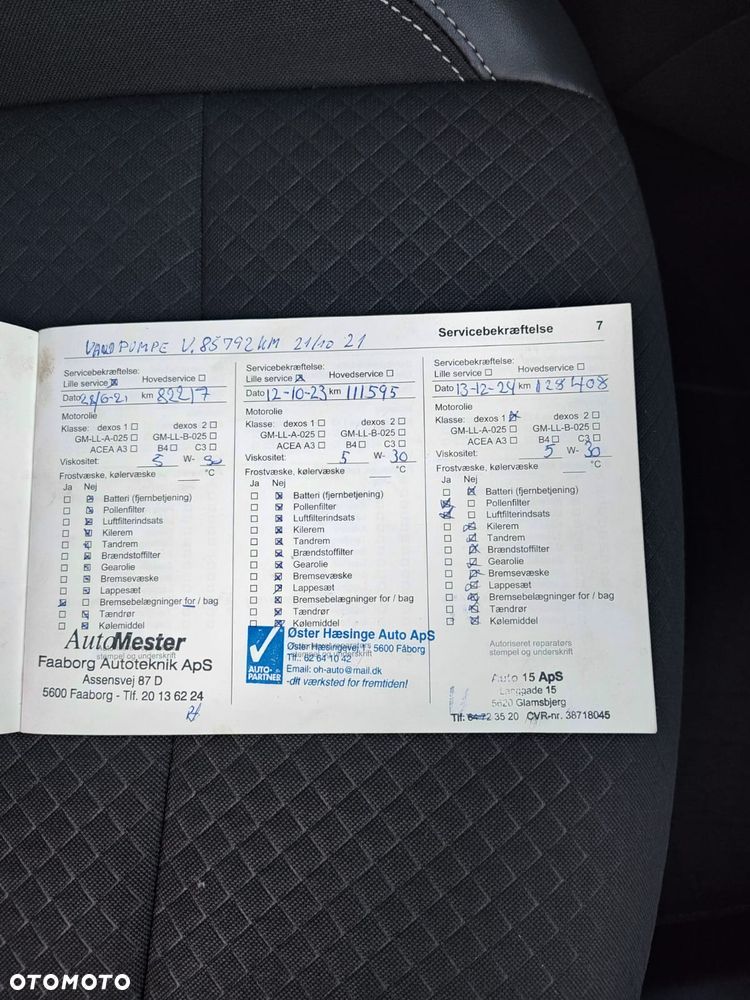 VANDPUMPE V. 85792 KM 21/10 21
Servicebekræftelse 7
Servicebekræftelse:
Lille service ☒ Hovedservice ☐
Dato km 82217
Motorolie
Klasse: dexos 1 ☐ dexos 2 ☐
GM-LL-A-025 ☐ GM-LL-B-025 ☐
ACEA A3 ☐ B4 ☐ C3 ☐
Viskositet: 5 W- 30
Frostvæske, kølervæske °C
Ja Nej
☐ ☒ Batteri (fjernbetjening)
☐ ☒ Pollenfilter
☐ ☒ Luftfilterindsats
☐ ☒ Kilerem
☐ ☒ Tandrem
☐ ☒ Brændstoffilter
☐ ☒ Gearolie
☐ ☒ Bremsevæske
☐ ☒ Lappesæt
☒ ☐ Bremsebelægninger for / bag
☐ ☒ Tændrør
☐ ☒ Kølemiddel
stempel og underskrift
AutoMester
Faaborg Autoteknik ApS
Assensvej 87 D
5600 Faaborg - Tlf. 20 13 62 24
Servicebekræftelse:
Lille service ☒ Hovedservice ☐
Dato 12-10-23 km 111595
Motorolie
Klasse: dexos 1 ☐ dexos 2 ☐
GM-LL-A-025 ☐ GM-LL-B-025 ☐
ACEA A3 ☐ B4 ☐ C3 ☐
Viskositet: 5 W- 30
Frostvæske, kølervæske °C
Ja Nej
☐ ☒ Batteri (fjernbetjening)
☐ ☒ Pollenfilter
☐ ☒ Luftfilterindsats
☐ ☒ Kilerem
☐ ☒ Tandrem
☐ ☒ Brændstoffilter
☐ ☒ Gearolie
☐ ☒ Bremsevæske
☐ ☒ Lappesæt
☐ ☒ Bremsebelægninger for / bag
☐ ☒ Tændrør
☐ ☒ Kølemiddel
stempel og underskrift
AUTO-PARTNER
Øster Hæsinge Auto ApS
Øster Hæsingevej 1 - 5600 Fåborg
Tlf.: 62 64 10 42
Email: oh-auto@mail.dk
-dit værksted for fremtiden!
Servicebekræftelse:
Lille service ☐ Hovedservice ☐
Dato 13-12-24 km 128408
Motorolie
Klasse: dexos 1 ☒ dexos 2 ☐
GM-LL-A-025 ☐ GM-LL-B-025 ☐
ACEA A3 ☐ B4 ☐ C3 ☐
Viskositet: 5 W- 30
Frostvæske, kølervæske °C
Ja Nej
☐ ☒ Batteri (fjernbetjening)
☒ ☐ Pollenfilter
☒ ☐ Luftfilterindsats
☐ ☒ Kilerem
☐ ☒ Tandrem
☐ ☒ Brændstoffilter
☐ ☒ Gearolie
☐ ☒ Bremsevæske
☐ ☒ Lappesæt
☐ ☒ Bremsebelægninger for / bag
☐ ☒ Tændrør
☐ ☒ Kølemiddel
Autoriseret reparatørs
stempel og underskrift
Auto 15 ApS
Langgade 15
5620 Glamsbjerg
Tlf: 64 72 35 20 CVR-nr. 38718045
OTOMOTO